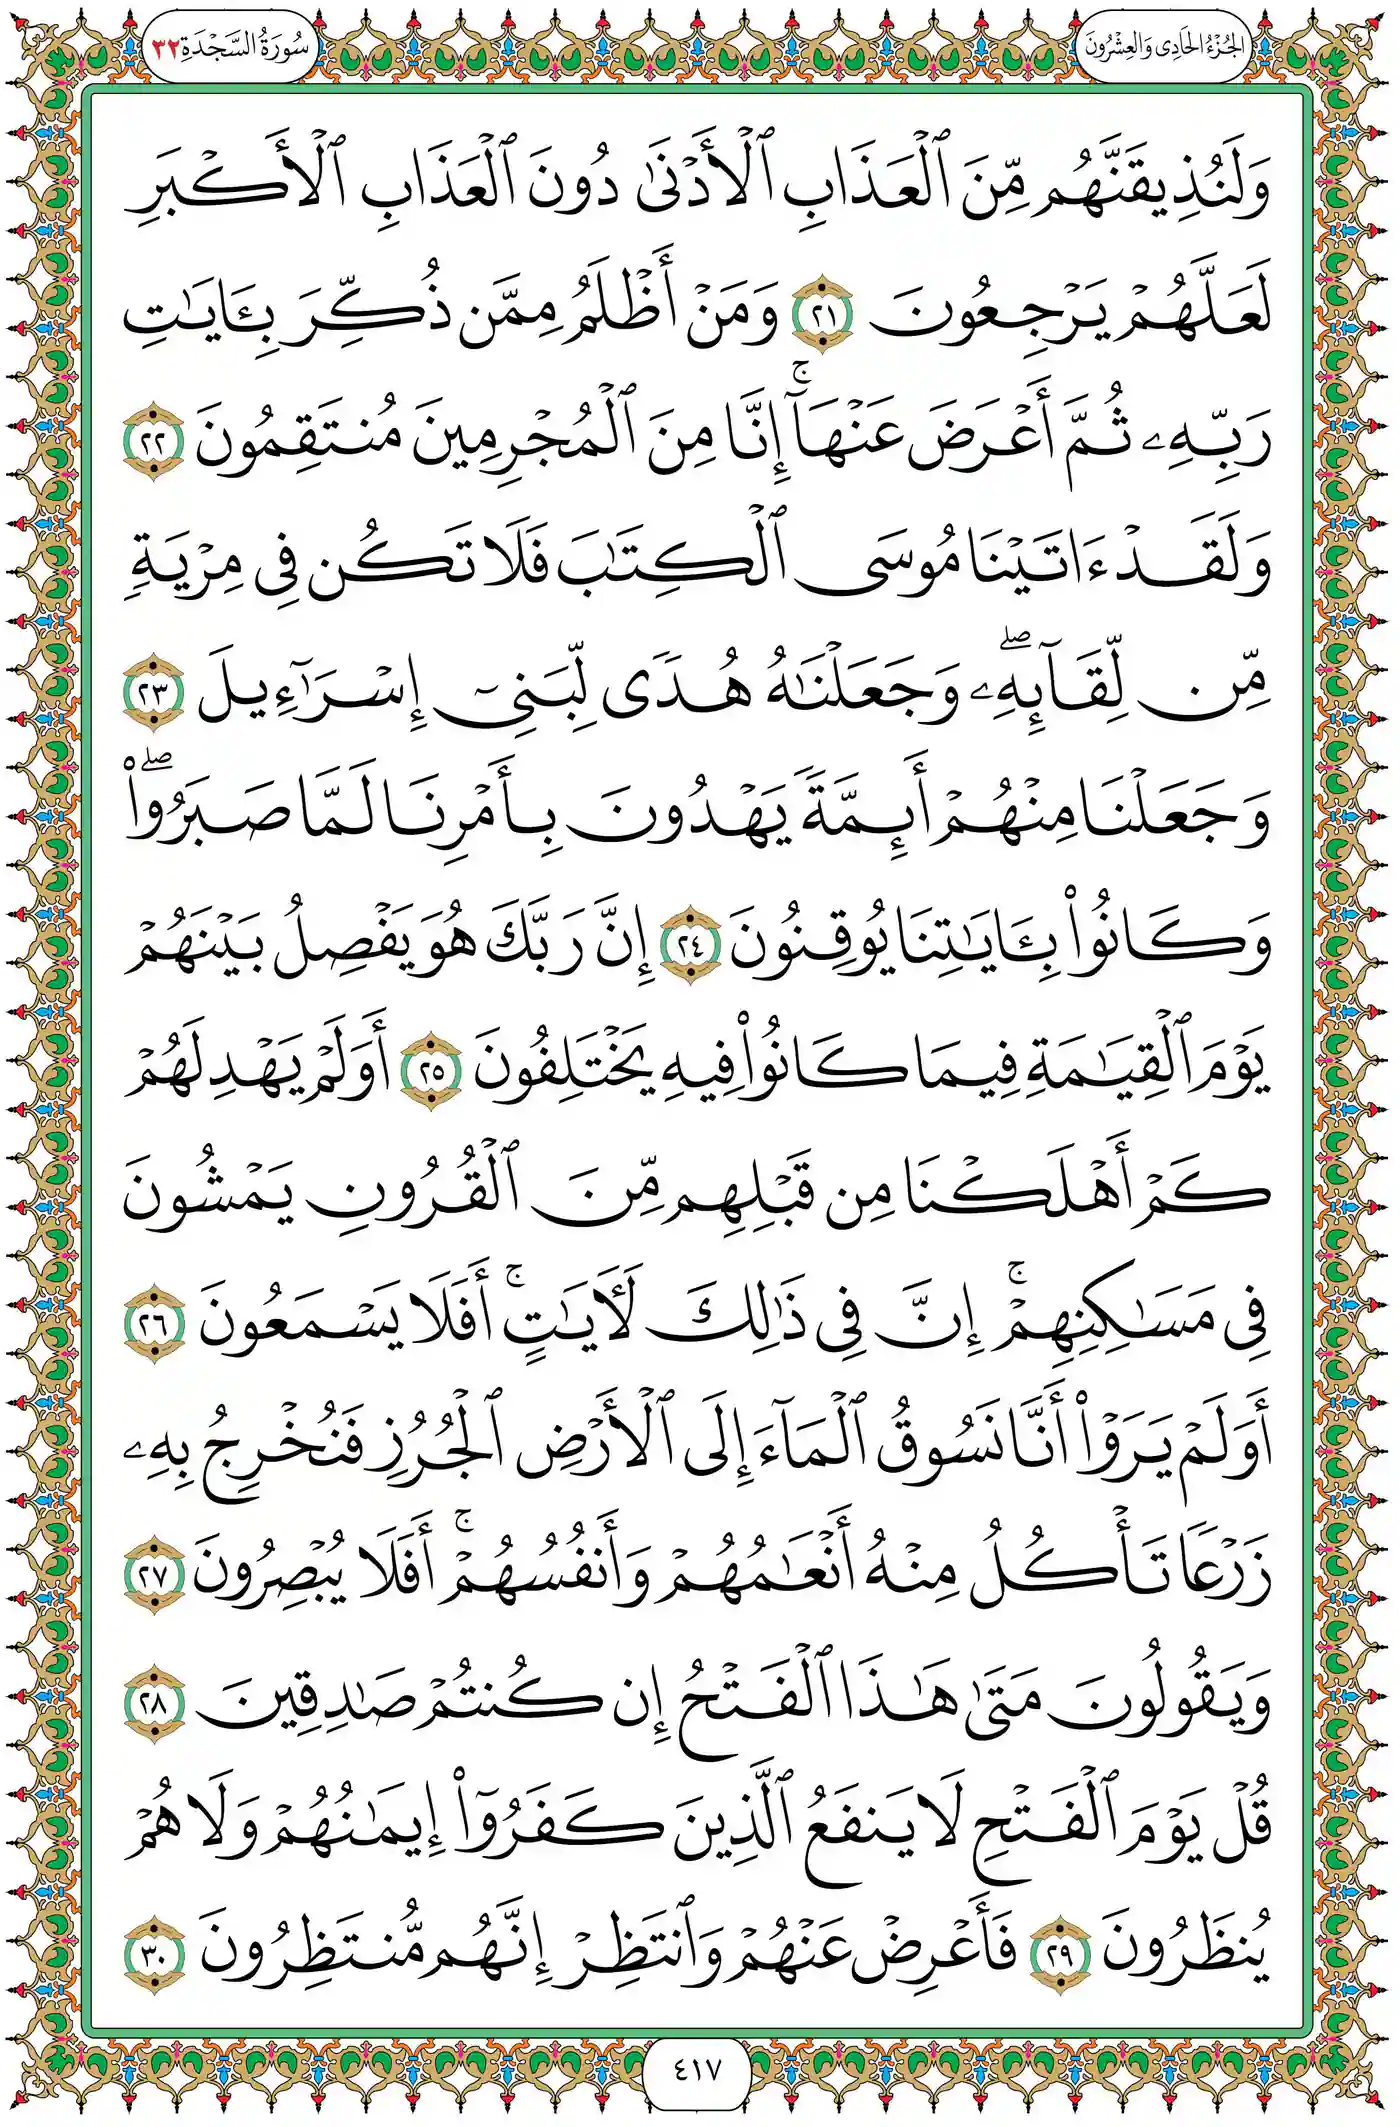 الجُزْءُ الحَادِي وَالعِشْرُونَ
سُورَةُ السَّجْدَةِ ٣٢
وَلَنُذِيقَنَّهُم مِّنَ ٱلْعَذَابِ ٱلْأَدْنَىٰ دُونَ ٱلْعَذَابِ ٱلْأَكْبَرِ
لَعَلَّهُمْ يَرْجِعُونَ ٢١ وَمَنْ أَظْلَمُ مِمَّن ذُكِّرَ بِـَٔايَٰتِ
رَبِّهِۦ ثُمَّ أَعْرَضَ عَنْهَآ ۚ إِنَّا مِنَ ٱلْمُجْرِمِينَ مُنتَقِمُونَ ٢٢
وَلَقَدْ ءَاتَيْنَا مُوسَى ٱلْكِتَٰبَ فَلَا تَكُن فِى مِرْيَةٍ
مِّن لِّقَآئِهِۦ ۖ وَجَعَلْنَٰهُ هُدًى لِّبَنِىٓ إِسْرَٰٓءِيلَ ٢٣
وَجَعَلْنَا مِنْهُمْ أَئِمَّةً يَهْدُونَ بِأَمْرِنَا لَمَّا صَبَرُوا۟ ۖ
وَكَانُوا۟ بِـَٔايَٰتِنَا يُوقِنُونَ ٢٤ إِنَّ رَبَّكَ هُوَ يَفْصِلُ بَيْنَهُمْ
يَوْمَ ٱلْقِيَٰمَةِ فِيمَا كَانُوا۟ فِيهِ يَخْتَلِفُونَ ٢٥ أَوَلَمْ يَهْدِ لَهُمْ
كَمْ أَهْلَكْنَا مِن قَبْلِهِم مِّنَ ٱلْقُرُونِ يَمْشُونَ
فِى مَسَٰكِنِهِمْ ۚ إِنَّ فِى ذَٰلِكَ لَـَٔايَٰتٍ ۚ أَفَلَا يَسْمَعُونَ ٢٦
أَوَلَمْ يَرَوْا۟ أَنَّا نَسُوقُ ٱلْمَآءَ إِلَى ٱلْأَرْضِ ٱلْجُرُزِ فَنُخْرِجُ بِهِۦ
زَرْعًا تَأْكُلُ مِنْهُ أَنْعَٰمُهُمْ وَأَنفُسُهُمْ ۚ أَفَلَا يُبْصِرُونَ ٢٧
وَيَقُولُونَ مَتَىٰ هَٰذَا ٱلْفَتْحُ إِن كُنتُمْ صَٰدِقِينَ ٢٨
قُلْ يَوْمَ ٱلْفَتْحِ لَا يَنفَعُ ٱلَّذِينَ كَفَرُوٓا۟ إِيمَٰنُهُمْ وَلَا هُمْ
يُنظَرُونَ ٢٩ فَأَعْرِضْ عَنْهُمْ وَٱنتَظِرْ إِنَّهُم مُّنتَظِرُونَ ٣٠
٤١٧